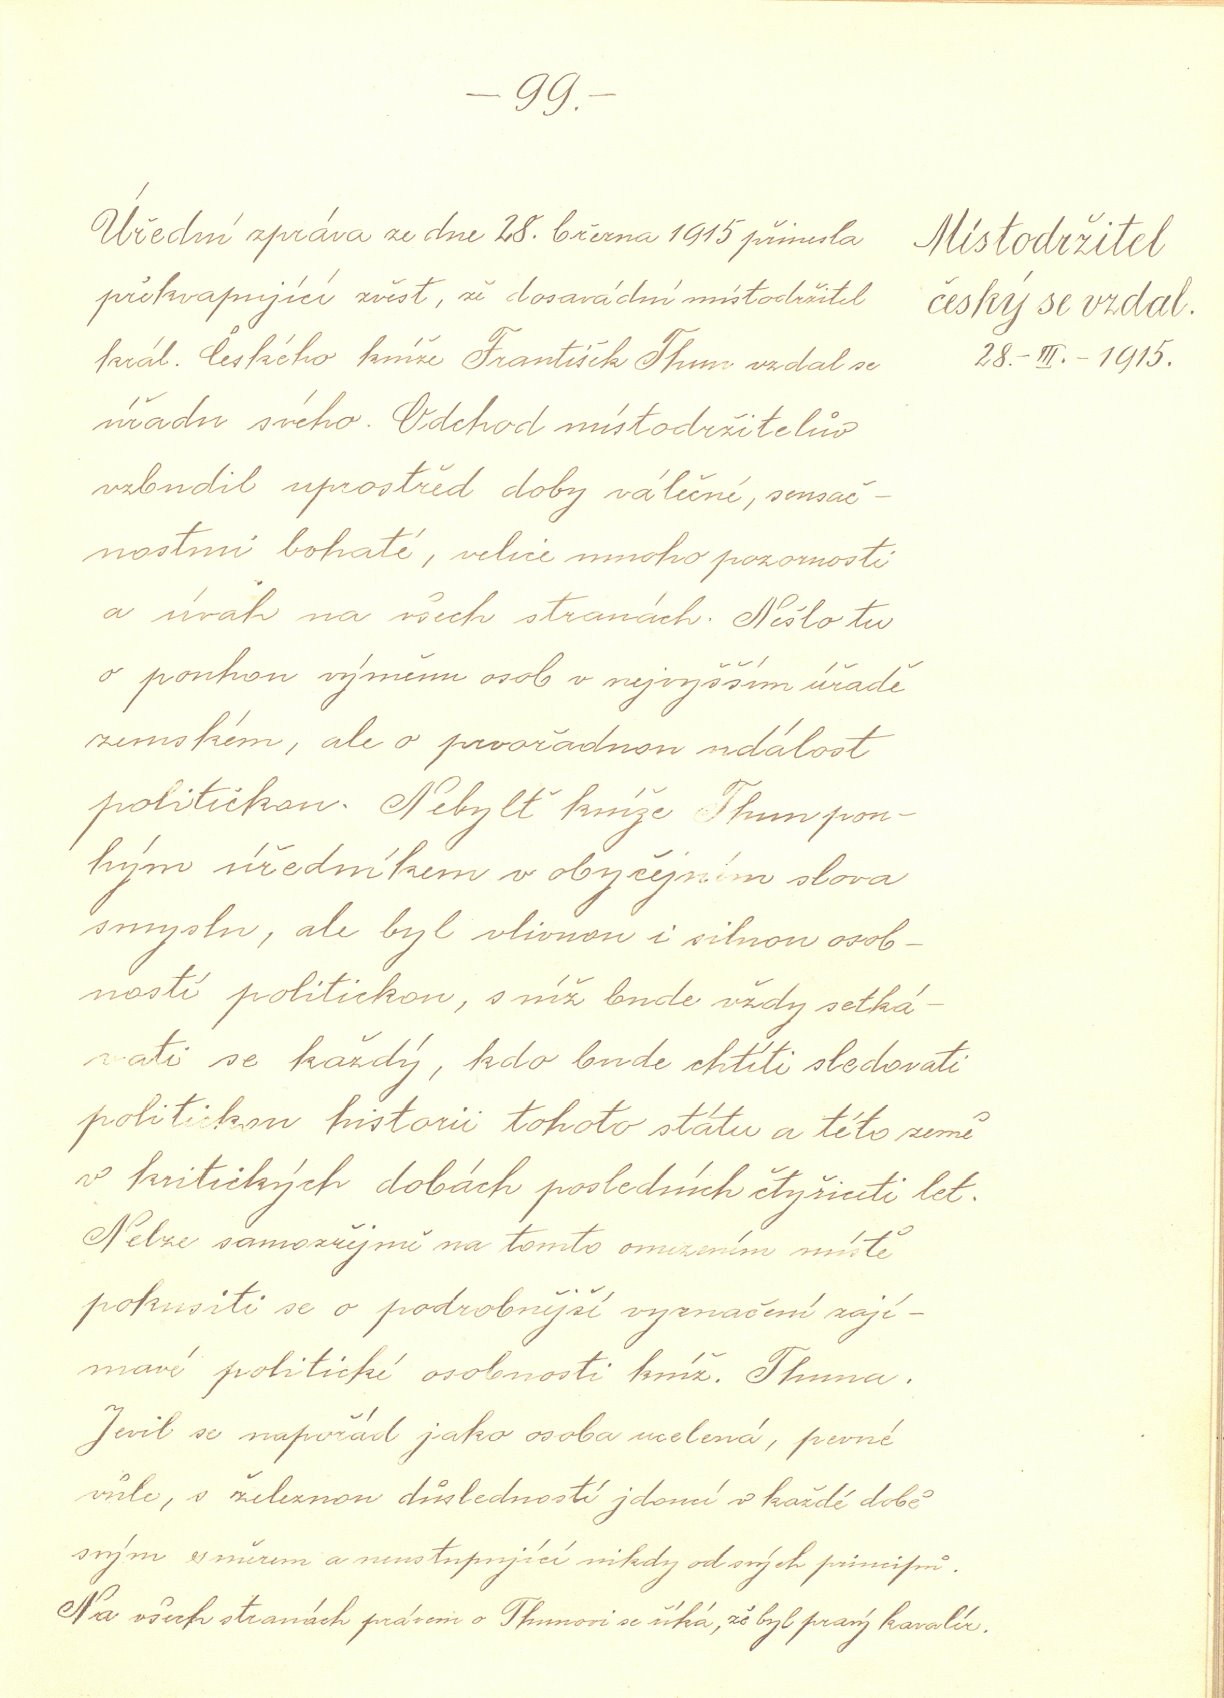 — 99. —
Úřední zpráva ze dne 28. března 1915 přinesla
překvapující zvěst, že dosavádní místodržitel
král. Českého kníže František Thun vzdal se
úřadu svého. Odchod místodržitelův
vzbudil uprostřed doby válečné, sensač-
nostmi bohaté, velice mnoho pozornosti
a úvah na všech stranách. Nešlo tu
o pouhou výměnu osob v nejvyšším úřadě
zemském, ale o prvořadnou událost
politickou. Nebylť kníže Thun pou-
hým úředníkem v obyčejném slova
smyslu, ale byl vlivnou i silnou osob-
ností politickou, s níž bude vždy setká-
vati se každý, kdo bude chtíti sledovati
politickou historii tohoto státu a této země
v kritických dobách posledních čtyřiceti let.
Nelze samozřejmě na tomto omezeném místě
pokusiti se o podrobnější vyznačení zají-
mavé politické osobnosti kníž. Thuna.
Jevil se napořád jako osoba ucelená, pevné
vůle, s železnou důsledností jdoucí v každé době
svým směrem a neustupující nikdy od svých principů.
Na všech stranách právem o Thunovi se říká, že byl pravý kavalír.
Místodržitel
český se vzdal.
28. – III. – 1915.